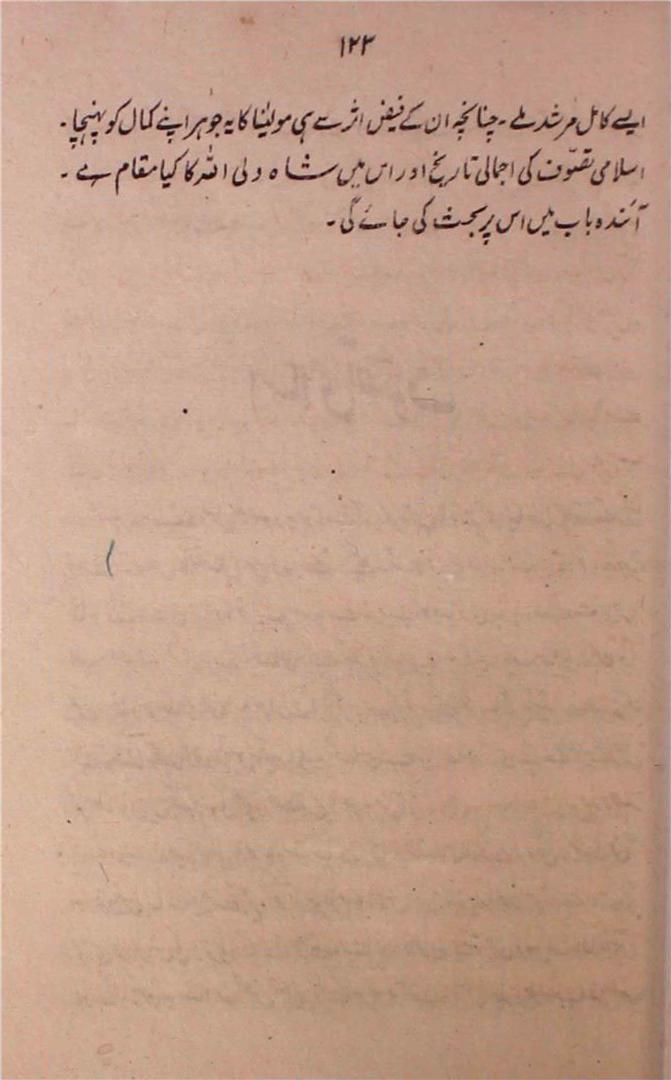 ۱۲۳
ایسے کامل مرشد ملے ۔ چنانچہ ان کے فیض اثر سے ہی مولینٰا کا یہ جوہر اپنے کمال کو پہنچا ۔
اسلامی تصوّف کی اجمالی تاریخ اور اس میں شاہ ولی اللہ کا کیا مقام ہے ۔
آئندہ باب میں اس پر بحث کی جائے گی ۔